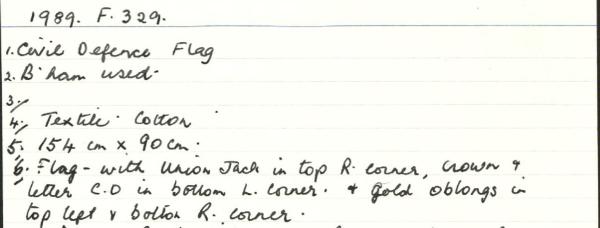 1989. F. 329.
1. Civil Defence Flag
2. B'ham used.
3.
4. Textile. Cotton
5. 154 cm x 90 cm.
6. Flag - with Union Jack in top R. corner, crown &
letter C.D in bottom L. corner. & gold oblongs in
top left & bottom R. corner.